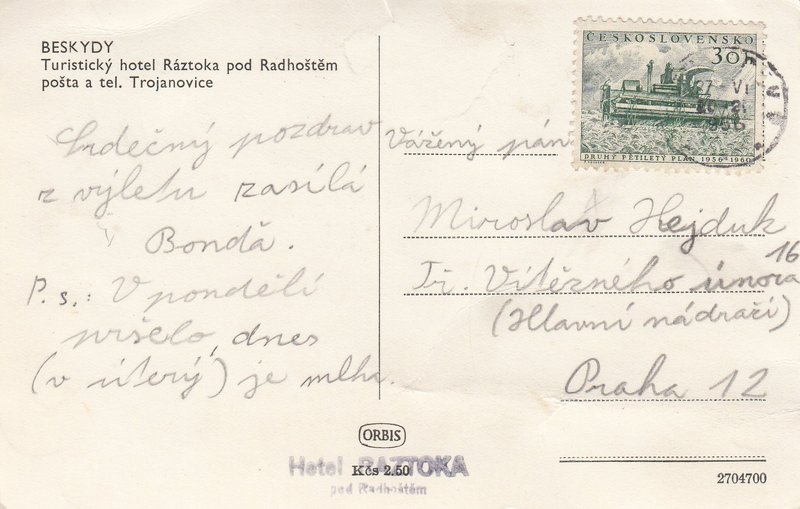 BESKYDY
Turistický hotel Ráztoka pod Radhoštěm
pošta a tel. Trojanovice
Srdečný pozdrav
z výletu zasílá
Bonďa.
P.s.: V pondělí
pršelo, dnes
(v úterý) je mlha.
ČESKOSLOVENSKO
30
DRUHÝ PĚTILETÝ PLÁN 1956-1960
Vážený pán
Miroslav Hejduk
Tř. Vítězného února 16
(Hlavní nádraží)
Praha 12
ORBIS
Hotel RÁZTOKA
Kčs 2.50
pod Radhoštěm
2704700